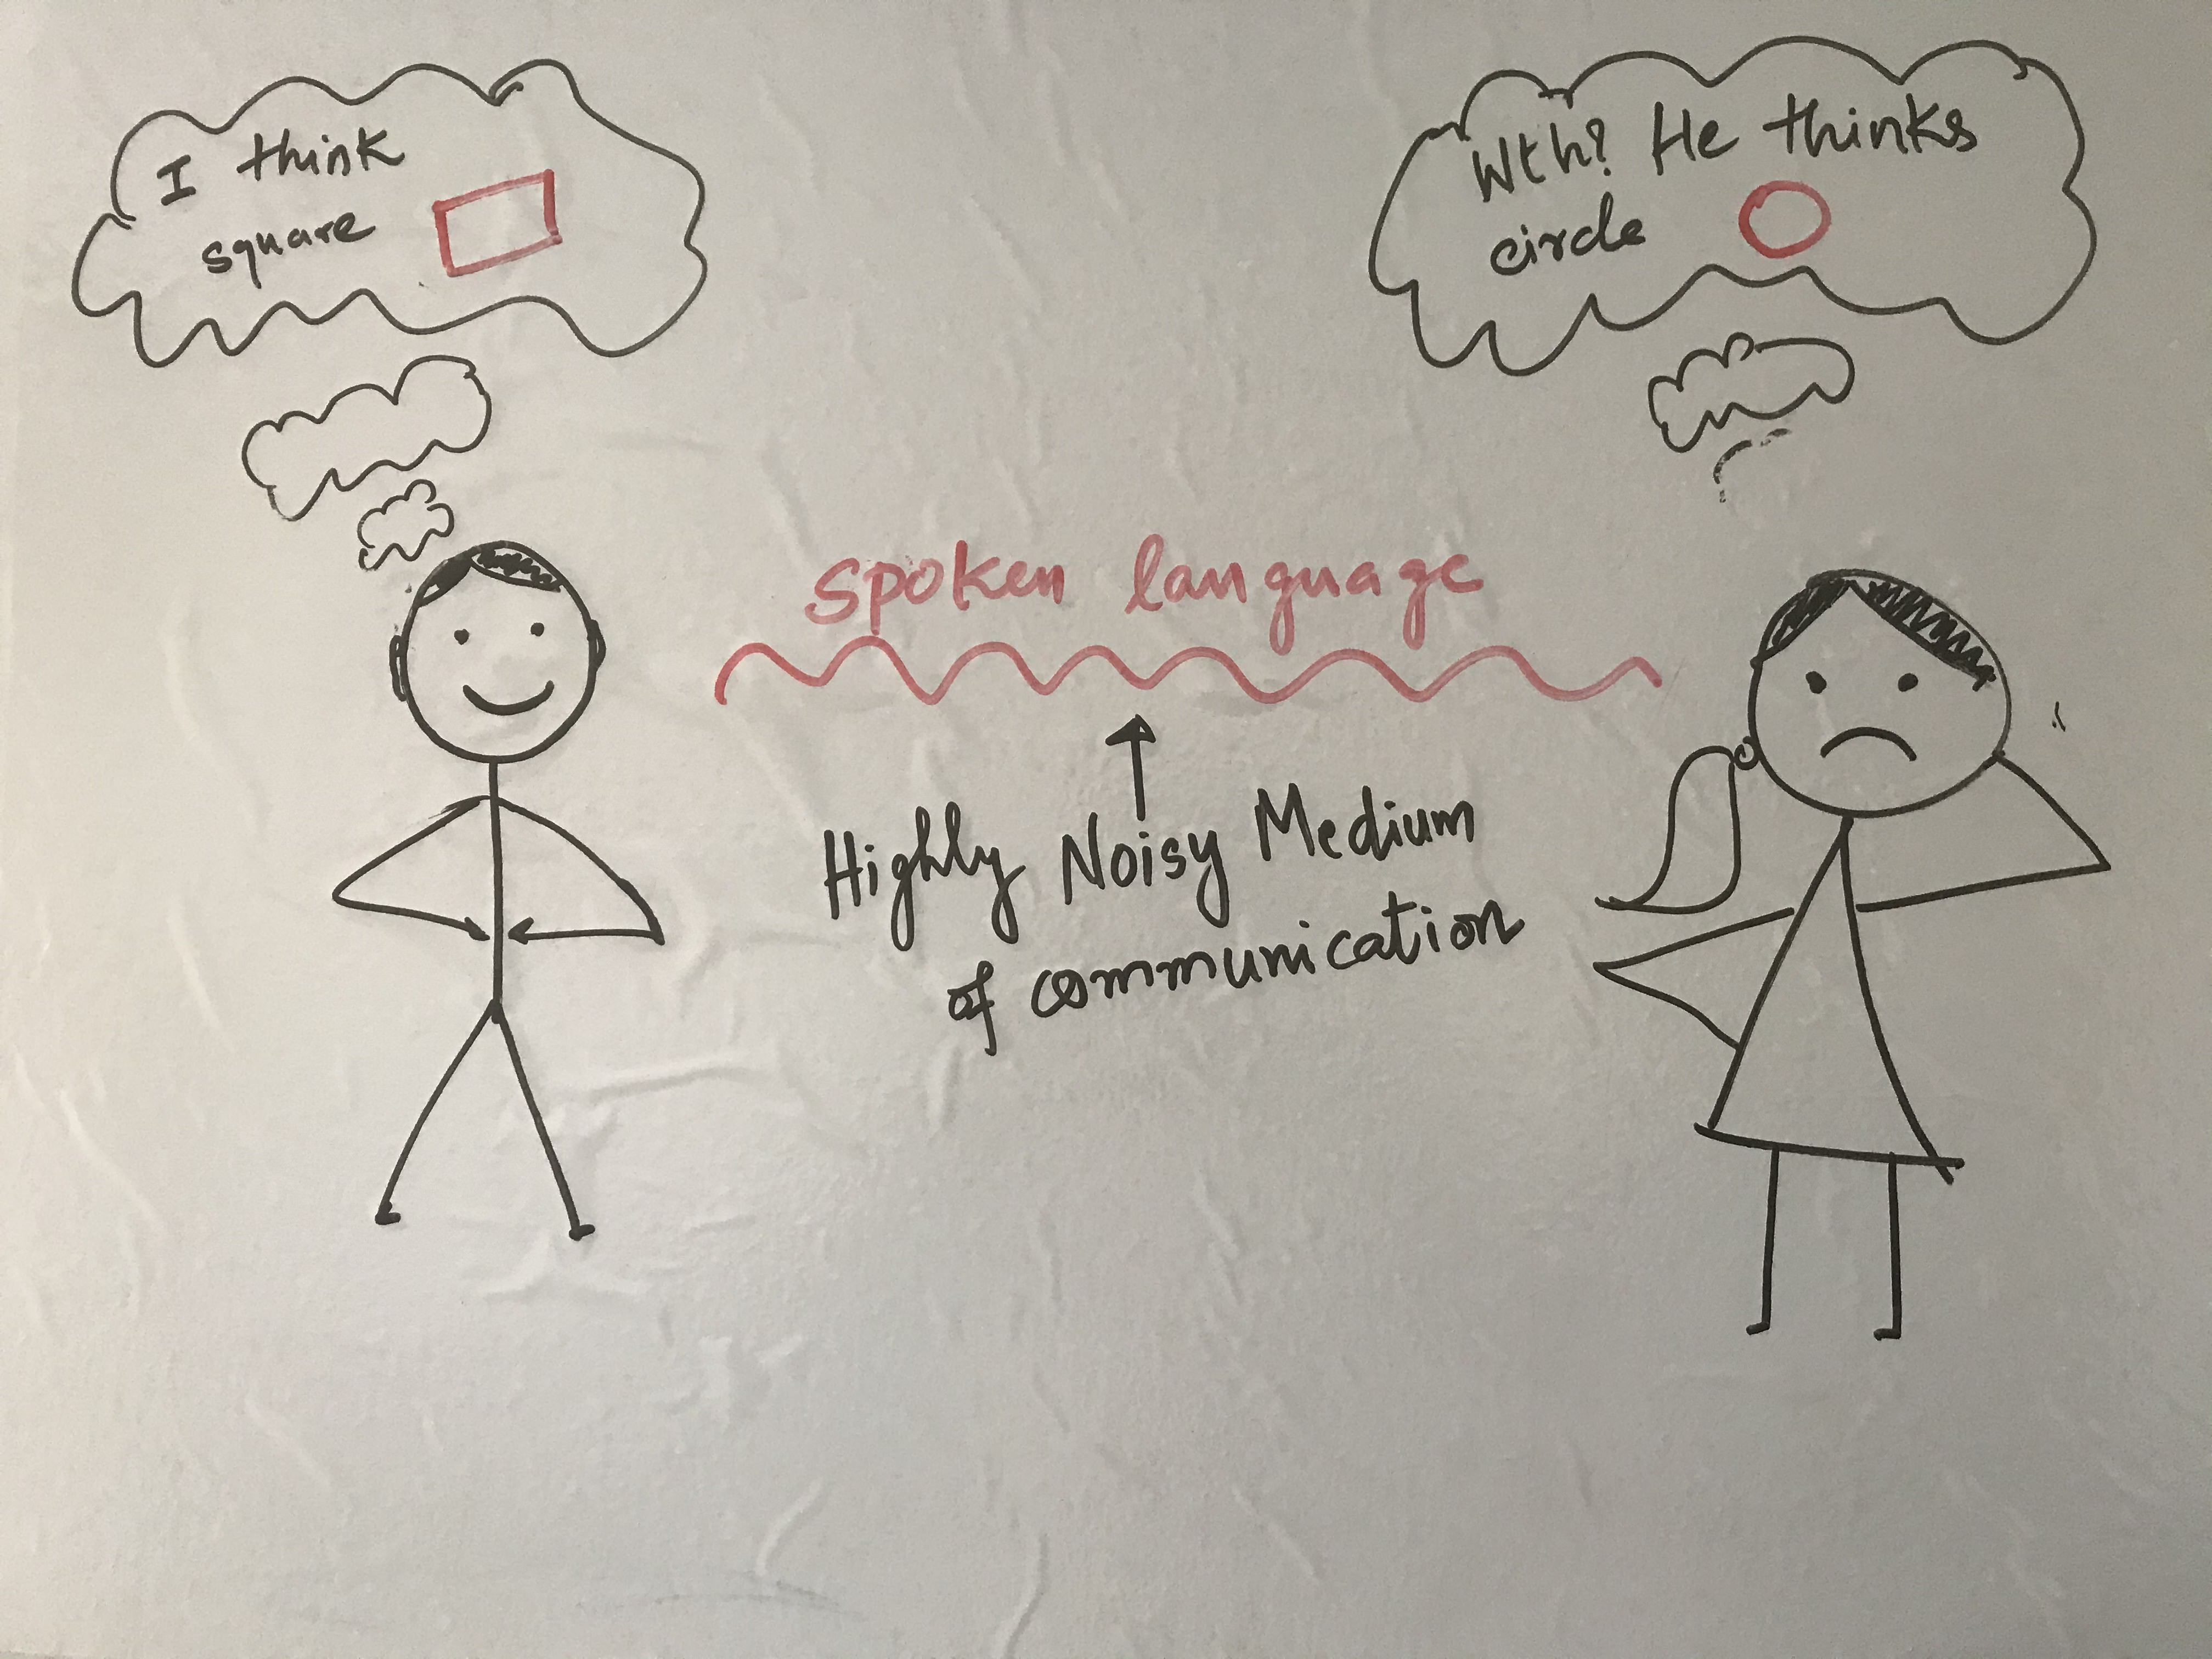 I think
square
Wth? He thinks
circle
Spoken language
Highly Noisy Medium
of communication